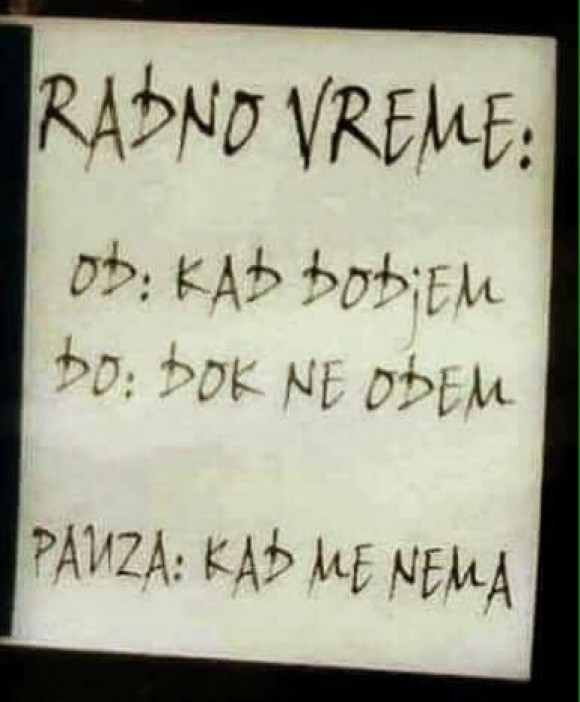 RADNO VREME:
OD: KAD DODjEM
DO: DOK NE ODEM
PAUZA: KAD ME NEMA